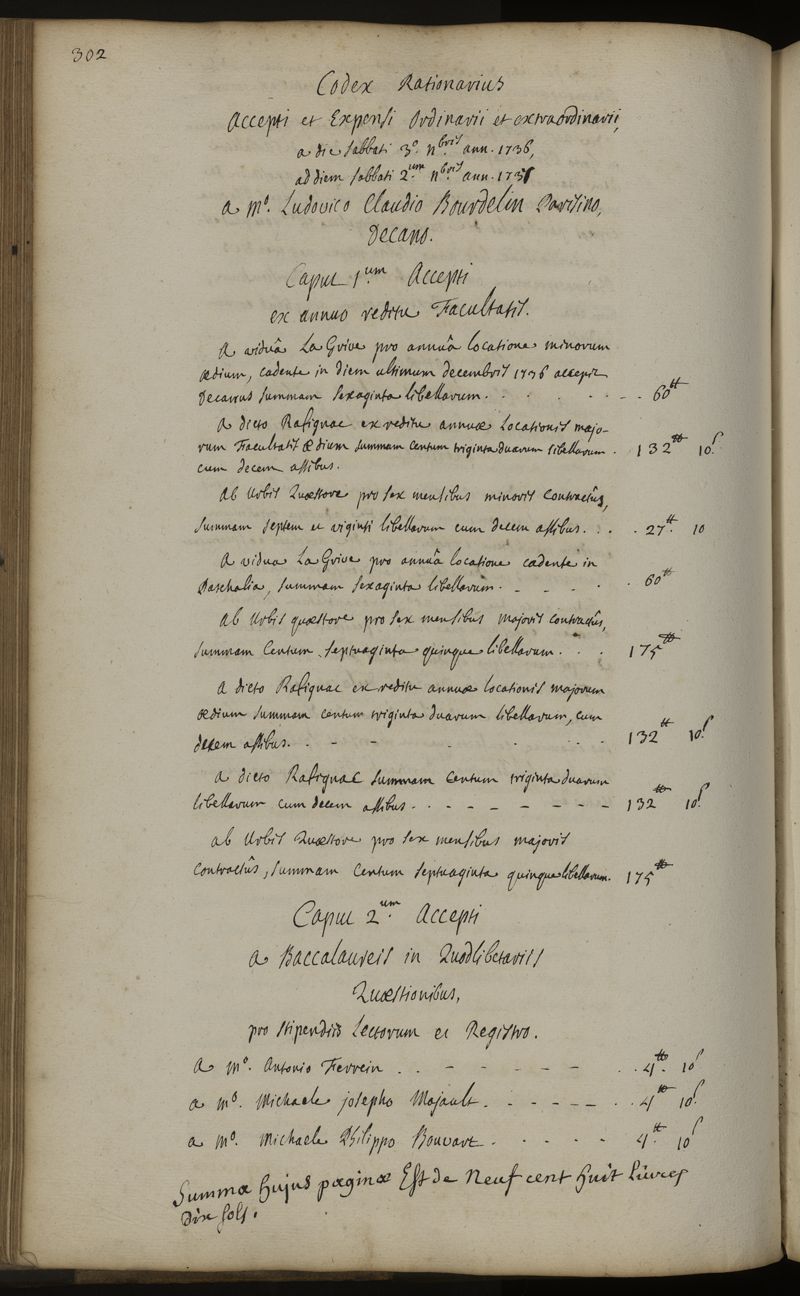 302
Codex Rationarius
Accepti et Expensi Ordinarii et extraordinarii,
a die sabbati 3º. nbris ann. 1736,
ad diem sabbati 2um. nbris ann. 1737
a mº. Ludovico Claudio Bourdelin Parisino,
Decano.
Caput 1um. Accepti
ex annuo reditu Facultatis.
A viduâ La Grive pro annuâ locatione minorum
ædium, cadente in diem ultimum decembris 1736 accepit
Decanus summam sexaginta libellarum. . . . . . - - 60tt
A dicto Rasignac ex reditu annuæ Locationis majo-
rum Facultatis Ædium summam centum triginta duarum libellarum . 132tt 10s
cum decem assibus.
Ab Urbis Quæstore pro sex mensibus minoris contractûs,
summam septem et viginti libellarum cum decem assibus. . . . 27tt. 10
A vidua La Grive pro annuâ locatione cadente in
Paschalia, summam sexaginta libellarum. - - . . . 60tt
Ab Urbis quæstore pro sex mensibus majoris contractûs,
summam Centum septuaginta quinque libellarum. . . 175tt
A dicto Rasignac ex reditu annuæ locationis majorum
ædium summam centum triginta duarum libellarum, cum
decem assibus. . - - . . . . 132tt 10s.
A dicto Rasignac summam centum triginta duarum
libellarum cum decem assibus . . - - - - - - - 132tt 10s.
ab Urbis Quæstore pro sex mensibus majoris
contractûs, summam Centum septuaginta quinque libellarum. 175tt
Caput 2um. Accepti
a Baccalaureis in Quodlibetariis
Quæstionibus,
pro stipendiis Lectorum et Registro.
A mº. Antonio Ferrein . . - - - - - . . 4tt. 10s
a mº. Michaele josepho Majault. - - - - - . . 4tt 10s.
a mº. Michaele Philippo Bouvart. . . . . - 4tt. 10s
Summa hujus paginæ Est de Neuf cent huit Livres
Dix sols.